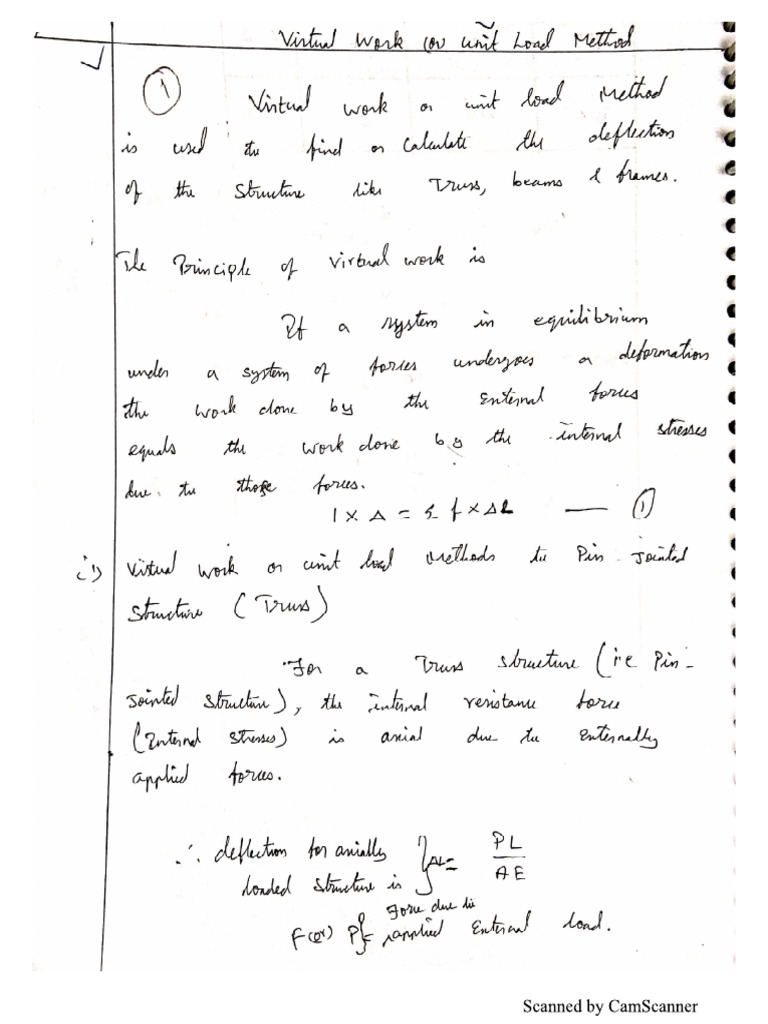 Virtual Work (or) unit Load Method
1
Virtual work or unit load Method
is used to find or calculate the deflection
of the structure like Truss, beams & frames.
The Principle of virtual work is
If a system in equilibrium
under a system of forces undergoes a deformation
the work done by the external forces
equals the work done by the internal stresses
due to those forces.
1 × Δ = Σ f × ΔL — 1
i) Virtual work or unit load Methods to Pin Jointed
structure (Truss)
For a Truss structure (i.e Pin-
Jointed structure), the internal resistance force
(Internal stresses) is axial due to externally
applied forces.
∴ deflection for axially
loaded structure is } ΔL = PL / AE
F (or) P } = Force due to
applied external load.
Scanned by CamScanner